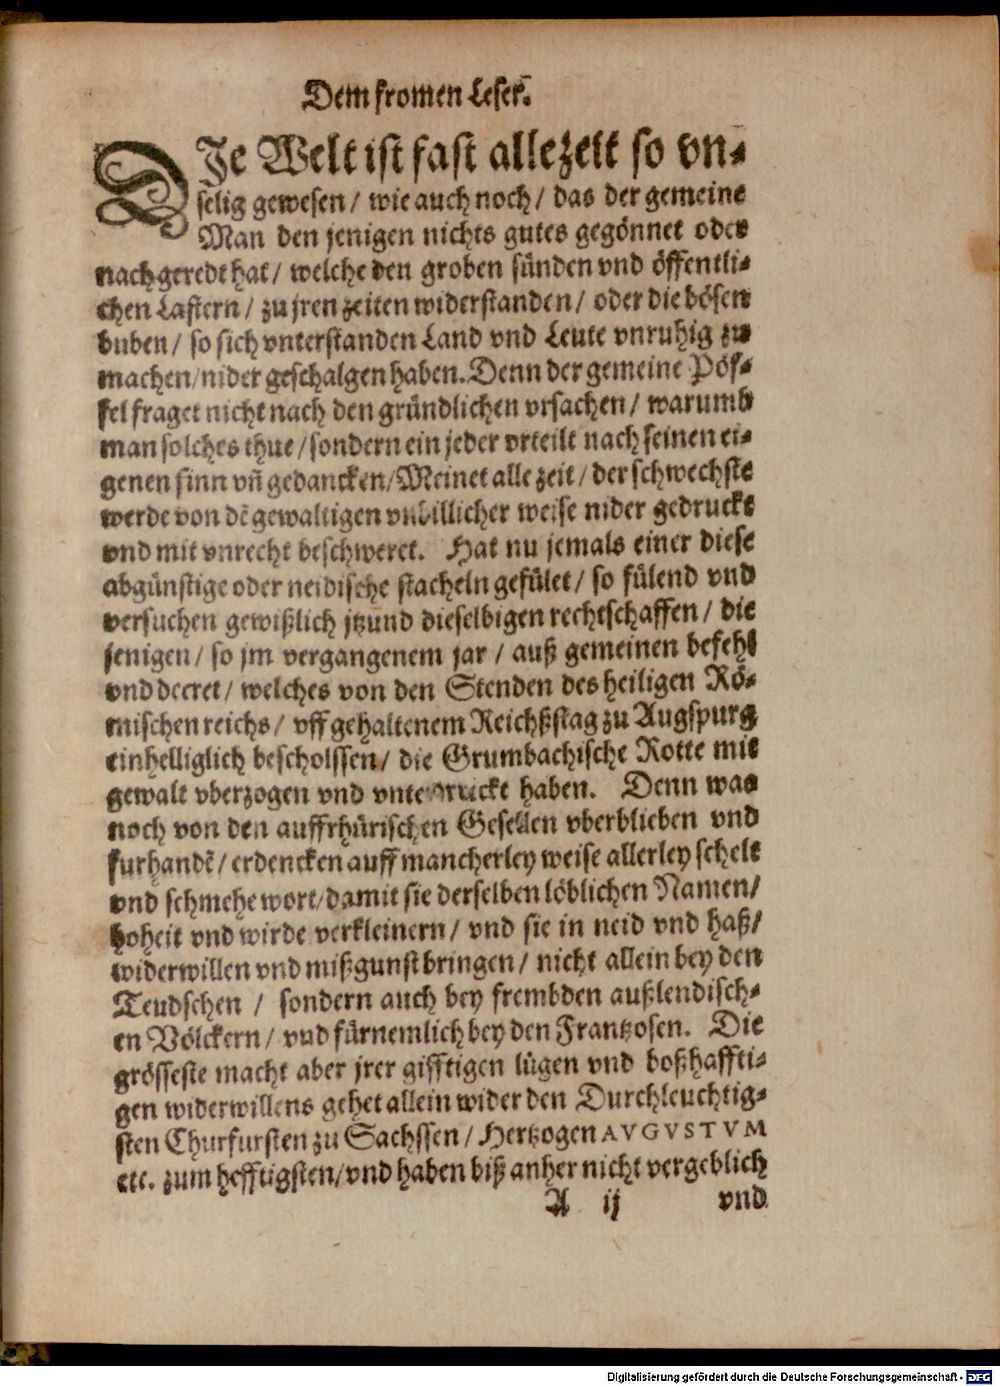 Dem fromen Leser.
DJe Welt ist fast allezeit so vn⸗
selig gewesen / wie auch noch / das der gemeine
Man den jenigen nichts gutes gegönnet oder
nachgeredt hat / welche den groben sünden vnd öffentli⸗
chen Lastern / zu jren zeiten widerstanden / oder die bösen
buben / so sich vnterstanden Land vnd Leute vnruhig zu
machen / nider geschalgen haben. Denn der gemeine Pöf⸗
fel fraget nicht nach den gründlichen vrsachen / warumb
man solches thue / sondern ein jeder vrteilt nach seinen ei⸗
genen sinn vñ gedancken / Meinet alle zeit / der schwechste
werde von dẽ gewaltigen vnbillicher weise nider gedruckt
vnd mit vnrecht beschweret. Hat nu jemals einer diese
abgünstige oder neidische stacheln gefület / so fülend vnd
versuchen gewißlich jtzund dieselbigen rechtschaffen / die
jenigen / so jm vergangenem jar / auß gemeinen befehl
vnd decret / welches von den Stenden des heiligen Rö⸗
mischen reichs / vff gehaltenem Reichßstag zu Augspurg
einhelliglich bescholssen / die Grumbachische Rotte mit
gewalt vberzogen vnd vnterdruckt haben. Denn was
noch von den auffrhürischen Gesellen vberblieben vnd
furhandẽ / erdencken auff mancherley weise allerley schelt
vnd schmehe wort / damit sie derselben löblichen Namen /
hoheit vnd wirde verkleinern / vnd sie in neid vnd haß /
widerwillen vnd mißgunst bringen / nicht allein bey den
Teudschen / sondern auch bey frembden außlendisch⸗
en Völckern / vnd fürnemlich bey den Frantzosen. Die
grösseste macht aber jrer gifftigen lügen vnd boßhaffti⸗
gen widerwillens gehet allein wider den Durchleuchtig⸗
sten Churfursten zu Sachssen / Hertzogen AVGVSTVM
etc. zum hefftigsten / vnd haben biß anher nicht vergeblich
A ij vnd
Digitalisierung gefördert durch die Deutsche Forschungsgemeinschaft - DFG